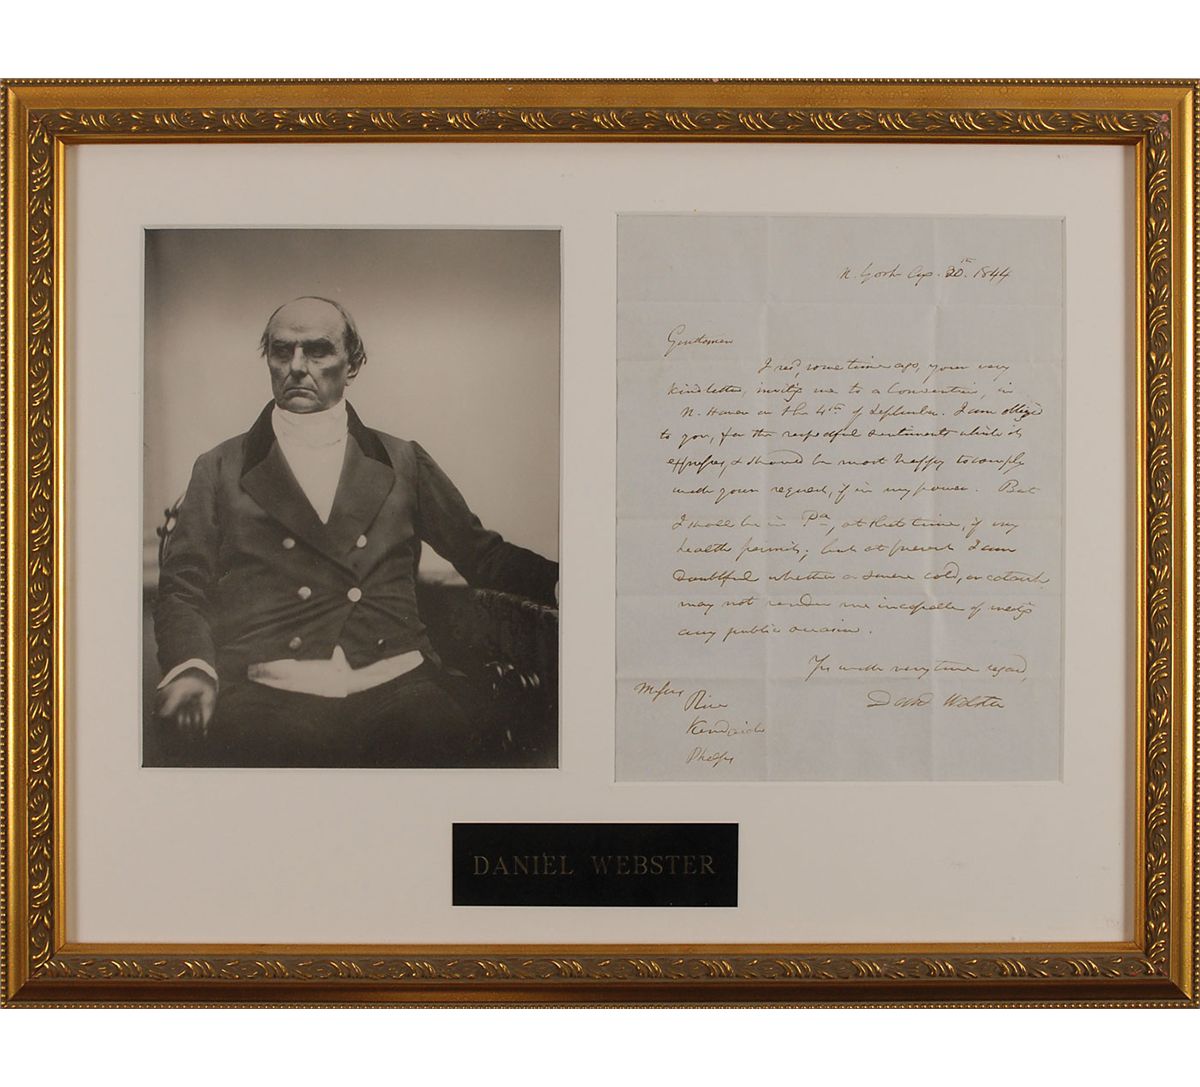 N. York Aug. 30th. 1844
Gentlemen
I recd, some time ago, your very
kind letter, inviting me to a Convention, in
N. Haven on the 4th of September. I am obliged
to you, for the respectful sentiments which it
expresses, & should be most happy to comply
with your request, if in my power. But
I shall be in Pa, at that time, if my
health permits; but at present I am
doubtful whether a severe cold, or catarrh
may not render me incapable of meeting
any public occasion.
Yrs with very true regard,
Danl Webster
Messrs
Rice
Kendrick
Phelps
DANIEL WEBSTER